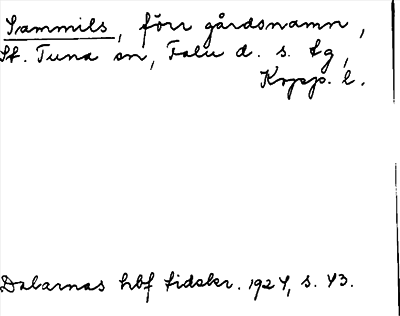 Sammils, förr gårdsnamn,
St. Tuna sn, Falu d. s. tg,
Kopp. l.
Dalarnas hbf tidskr. 1924, s. 43.